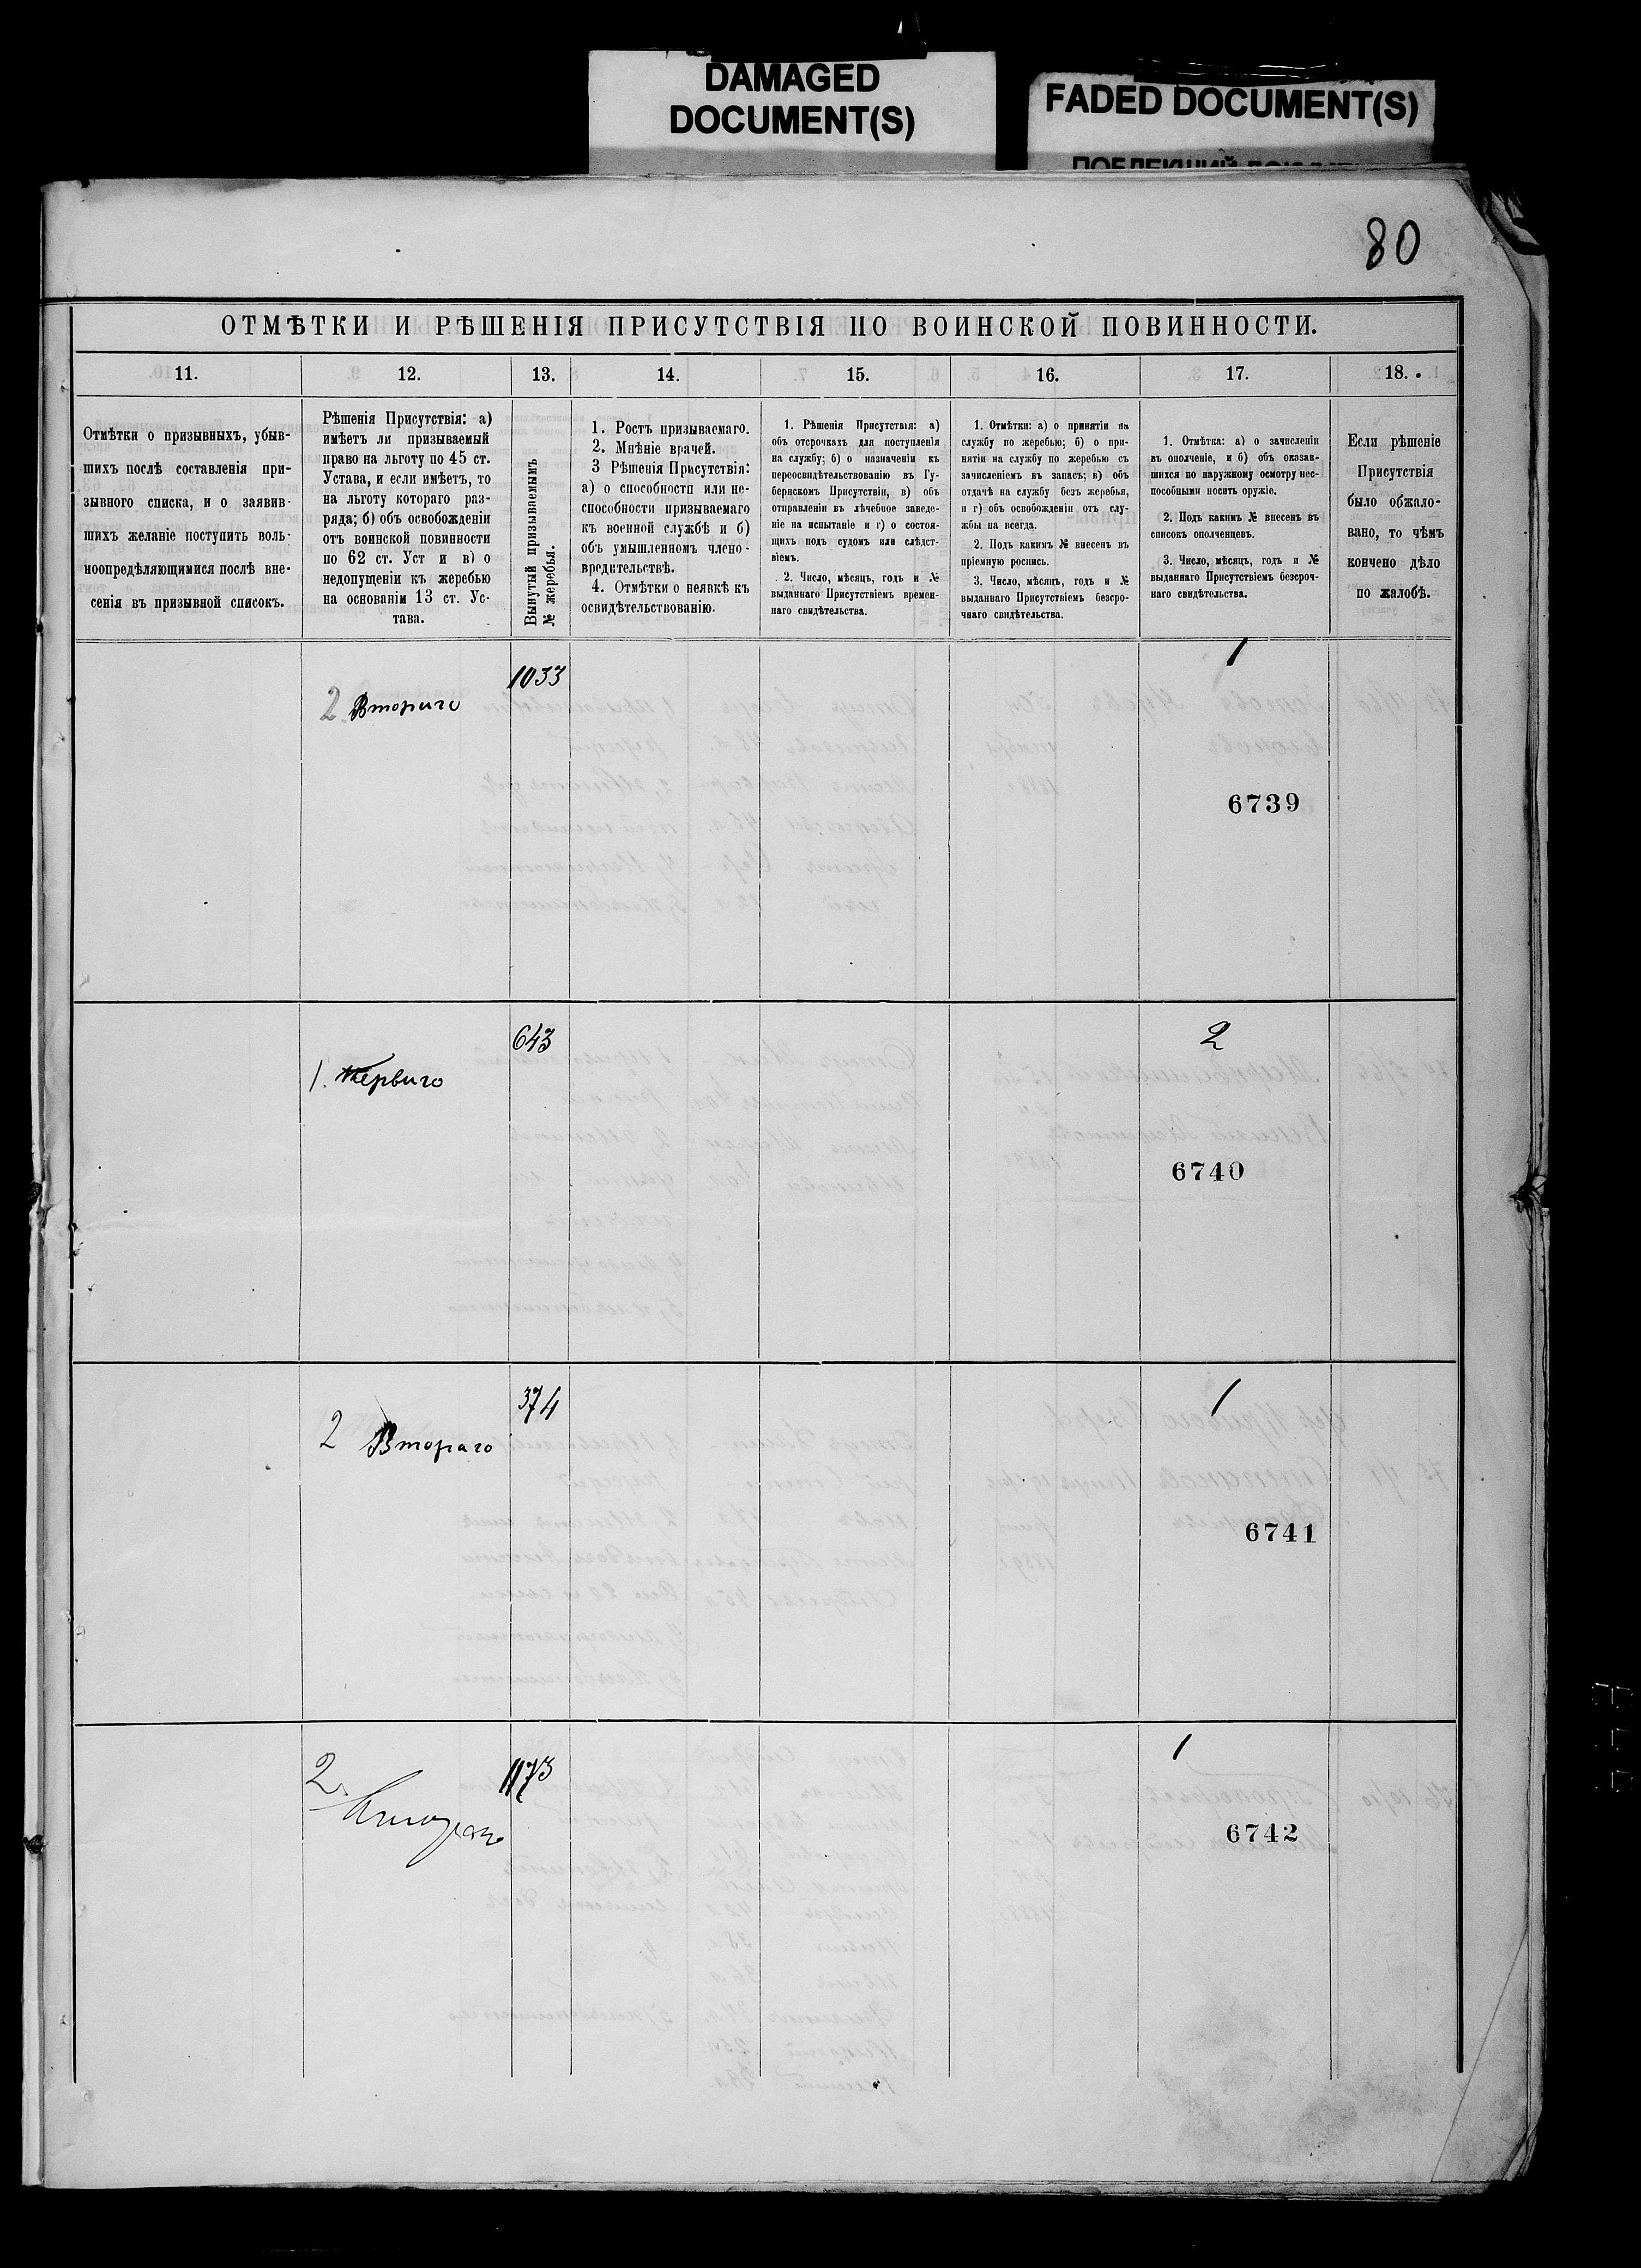 DAMAGED
DOCUMENT(S)
FADED DOCUMENT(S)
80
ОТМѢТКИ И РѢШЕНІЯ ПРИСУТСТВІЯ ПО ВОИНСКОЙ ПОВИННОСТИ.
11.
12.
13.
14.
15.
16.
17.
18.
Отмѣтки о призывныхъ, убыв-
шихъ послѣ составленія при-
зывного списка, и о заявив-
шихъ желаніе поступить воль-
ноопредѣляющимися послѣ вне-
сенія въ призывной списокъ.
Рѣшенія Присутствія: а)
имѣетъ ли призываемый
право на льготу по 45 ст.
Устава, и если имѣетъ, то
на льготу котораго раз-
ряда; б) объ освобожденіи
отъ воинской повинности
по 62 ст. Уст и в) о
недопущеніи къ жеребью
на основаніи 13 ст. Ус-
тава.
Вынутый призываемымъ
№ жеребья.
1. Ростъ призываемаго.
2. Мнѣніе врачей.
3 Рѣшенія Присутствія:
а) о способности или не-
способности призываемаго
къ военной службѣ и б)
объ умышленномъ члено-
вредительствѣ.
4. Отмѣтки о неявкѣ къ
освидѣтельствованію.
1. Рѣшенія Присутствія: а)
объ отсрочкахъ для поступленія
на службу; б) о назначеніи къ
переосвидѣтельствованію въ Гу-
бернскомъ Присутствіи, в) объ
отправленіи въ лѣчебное заведе-
ніе на испытаніе и г) о состоя-
щихъ подъ судомъ или слѣдст-
віемъ.
2. Число, мѣсяцъ, годъ и №
выданнаго Присутствіемъ времен-
наго свидѣтельства.
1. Отмѣтки: а) о принятіи на
службу по жеребью; б) о при-
нятіи на службу по жеребью съ
зачисленіемъ въ запасъ; в) объ
отдачѣ на службу безъ жеребья,
и г) объ освобожденіи отъ слу-
жбы на всегда.
2. Подъ какимъ № внесенъ въ
пріемную роспись.
3. Число, мѣсяцъ, годъ и №
выданваго Присутствіемъ безсро-
чнаго свидѣтельства.
1. Отмѣтка: а) о зачисленіи
въ ополченіе, и б) объ оказав-
шихся по наружному осмотру нес-
пособными носить оружіе.
2. Подъ какимъ № внесенъ въ
списокъ ополченцевъ.
3. Число, мѣсяцъ, годъ и №
выданнаго Присутствіемъ безсроч-
наго свидѣтельства.
Если рѣшеніе
Присутствія
было обжало-
вано, то чѣмъ
кончено дѣло
по жалобѣ.
2 Втораго
1033
1
6739
1. Перваго
643
2
6740
2 Втораго
374
1
6741
2. Втораго
1173
1
6742